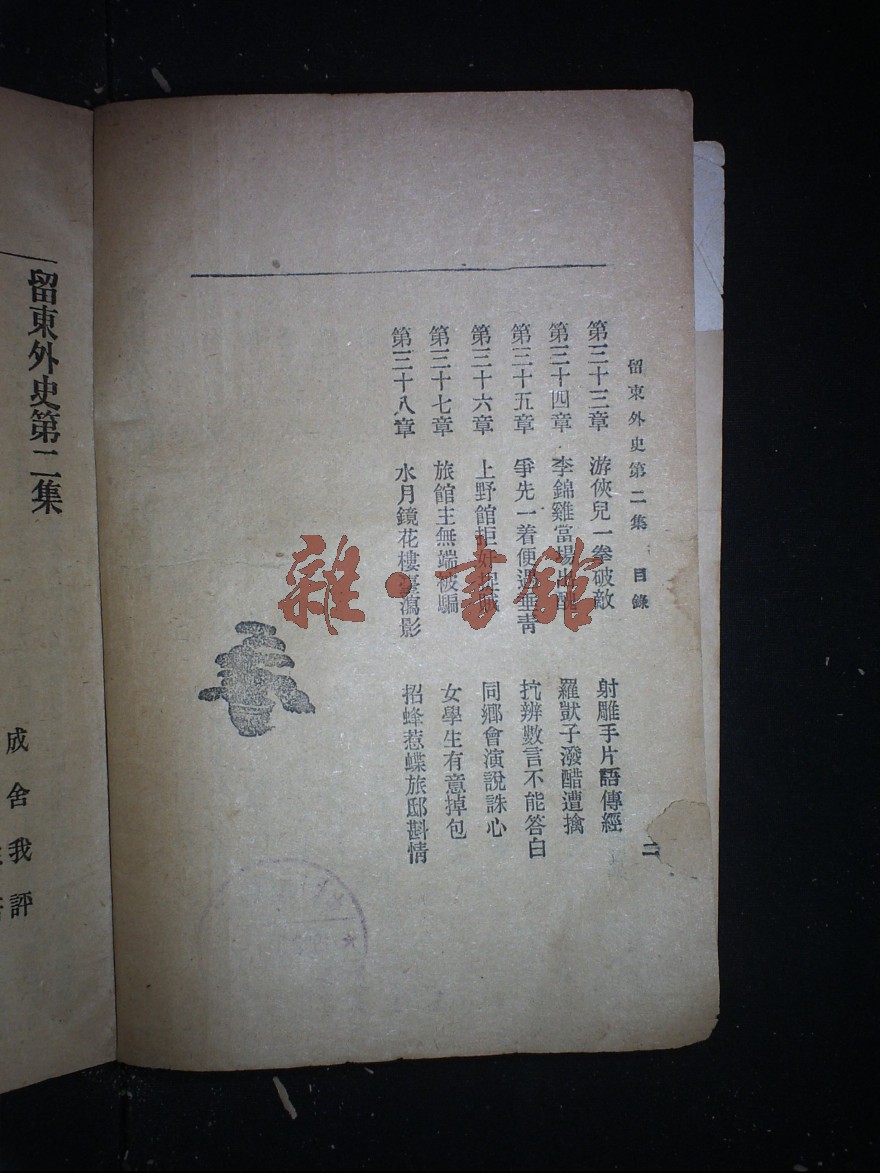 留東外史第二集 目錄
二
第三十三章 游俠兒一拳破敵 射雕手片語傳經
第三十四章 李錦雞當場出醜 羅獃子潑醋遭擒
第三十五章 爭先一着便遇垂青 抗辨數言不能答白
第三十六章 上野館拒奸捉賊 同鄉會演說誅心
第三十七章 旅館主無端被騙 女學生有意掉包
第三十八章 水月鏡花樓臺瀉影 招蜂惹蝶旅邸斟情
雜·書館
留東外史第二集
成舍我評